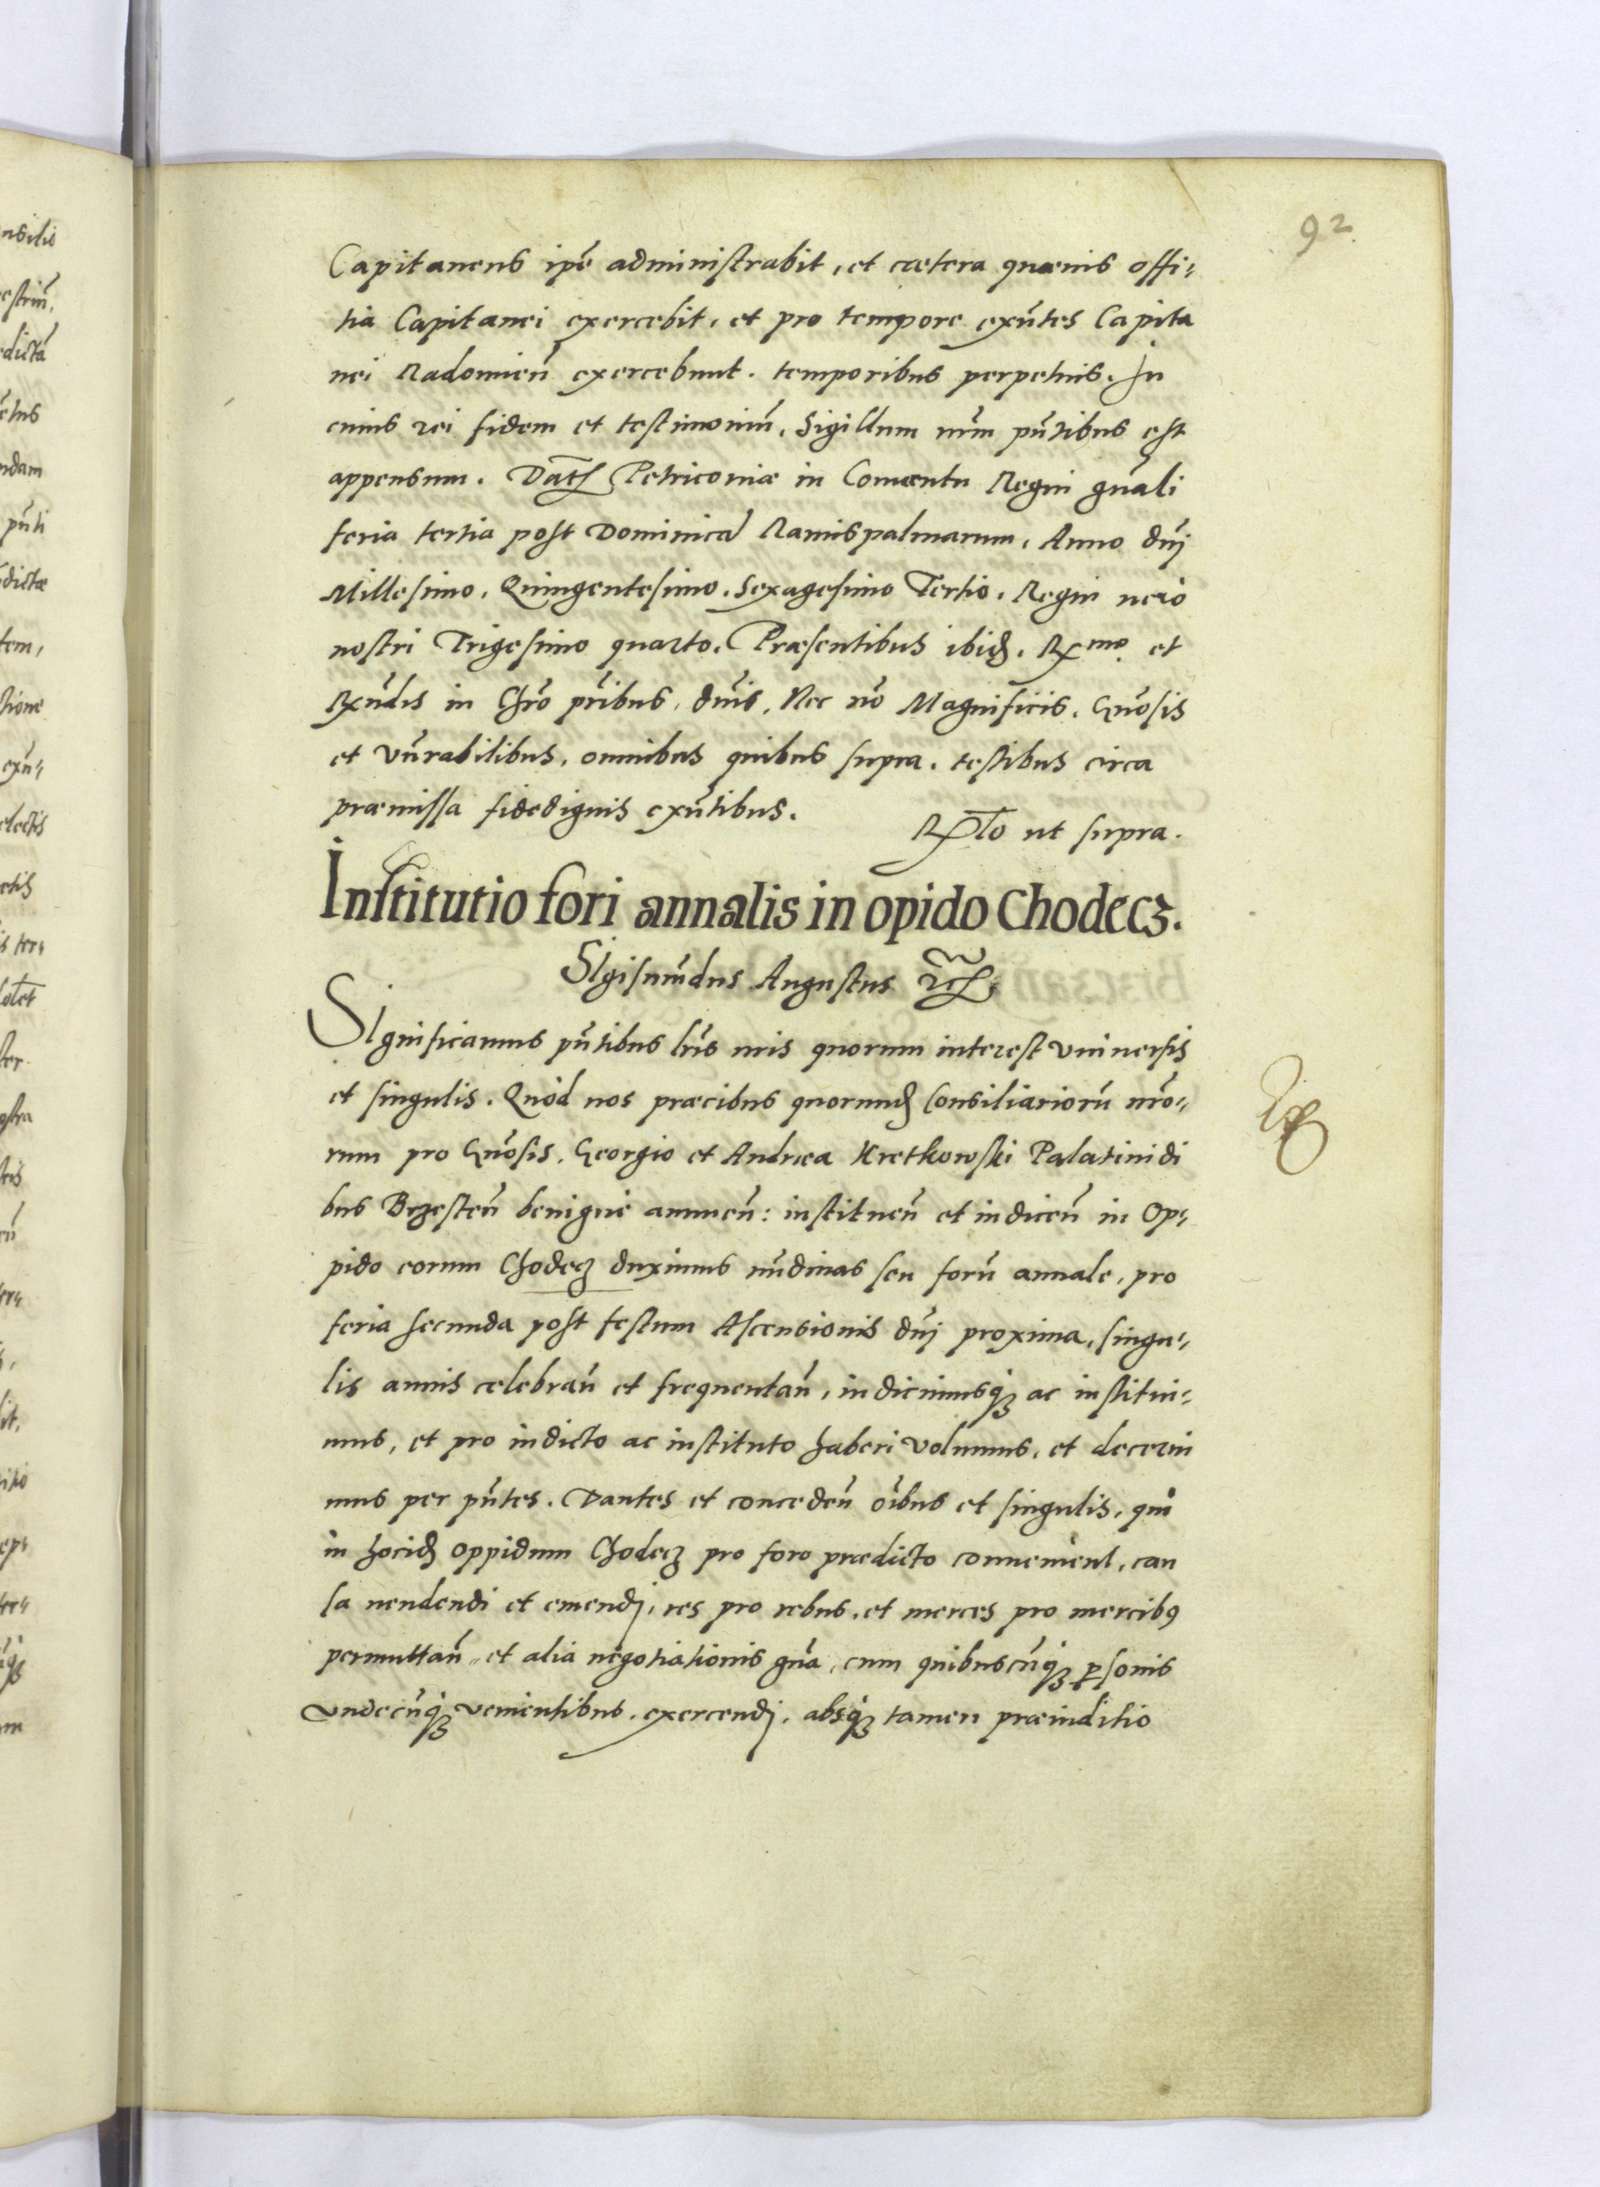 92
Capitaneus ipẽ administrabit, et cætera quæuis offi-
tia Capitanei exercebit, et pro tempore exñtes Capita
nei Radomieñ exercebunt. temporibus perpetuis. In
cuius rei fidem et testimoniũ, Sigillum nrm̃ pñtibus est
appensum. Dat̃ Petricouiæ in Conuentu Regni gnãli
feria tertia post Dominicã Ramispalmarum, Anno dnj̃
Millesimo, Quingentesimo, Sexagesimo Tertio, Regni uerò
nostri Trigesimo quarto, Præsentibus ibid. Rmo et
Rñdis in Chrõ pr̃ibus, dñis, Nec nõ Magnificis, Gñosis
et Vñrabilibus, omnibus quibus supra, testibus circa
præmissa fidedignis exñtibus.
Rlõ ut supra.
Institutio fori annalis in opido Chodecz.
SIgismũdus Augustus etc̃
SIgnificamus pñtibus lr̃is nr̃is quorum interest Vniuersis
et singulis. Quòd nos præcibus quorund Consiliariorũ nrõ-
rum pro Gñosis, Georgio et Andrea Kretkowski Palatinidi
bus Brzesteñ benignè annueñ: instituеñ et indiceñ in Op-
pido eorum Chodecz duximus nũdinas seu forũ annale, pro
feria secunda post festum Ascensionis dnj̃ proxima, singu-
lis annis celebrañ et frequentañ, indicimusq3 ac institui-
mus, et pro indicto ac instituto haberi volumus, et decerni
mus per pñtes. Dantes et concedeñ oĩbus et singulis, qui
in hocid oppidum Chodecz pro foro prædicto conuenient, cau
sa uendendi et emendj, res pro rebus, et merces pro mercib9
permuttañ, et alia negotiationis gñа, cum quibuscũq3 psonis
Vndecũq3 venientibus, exercendj, absq3 tamen præiuditio